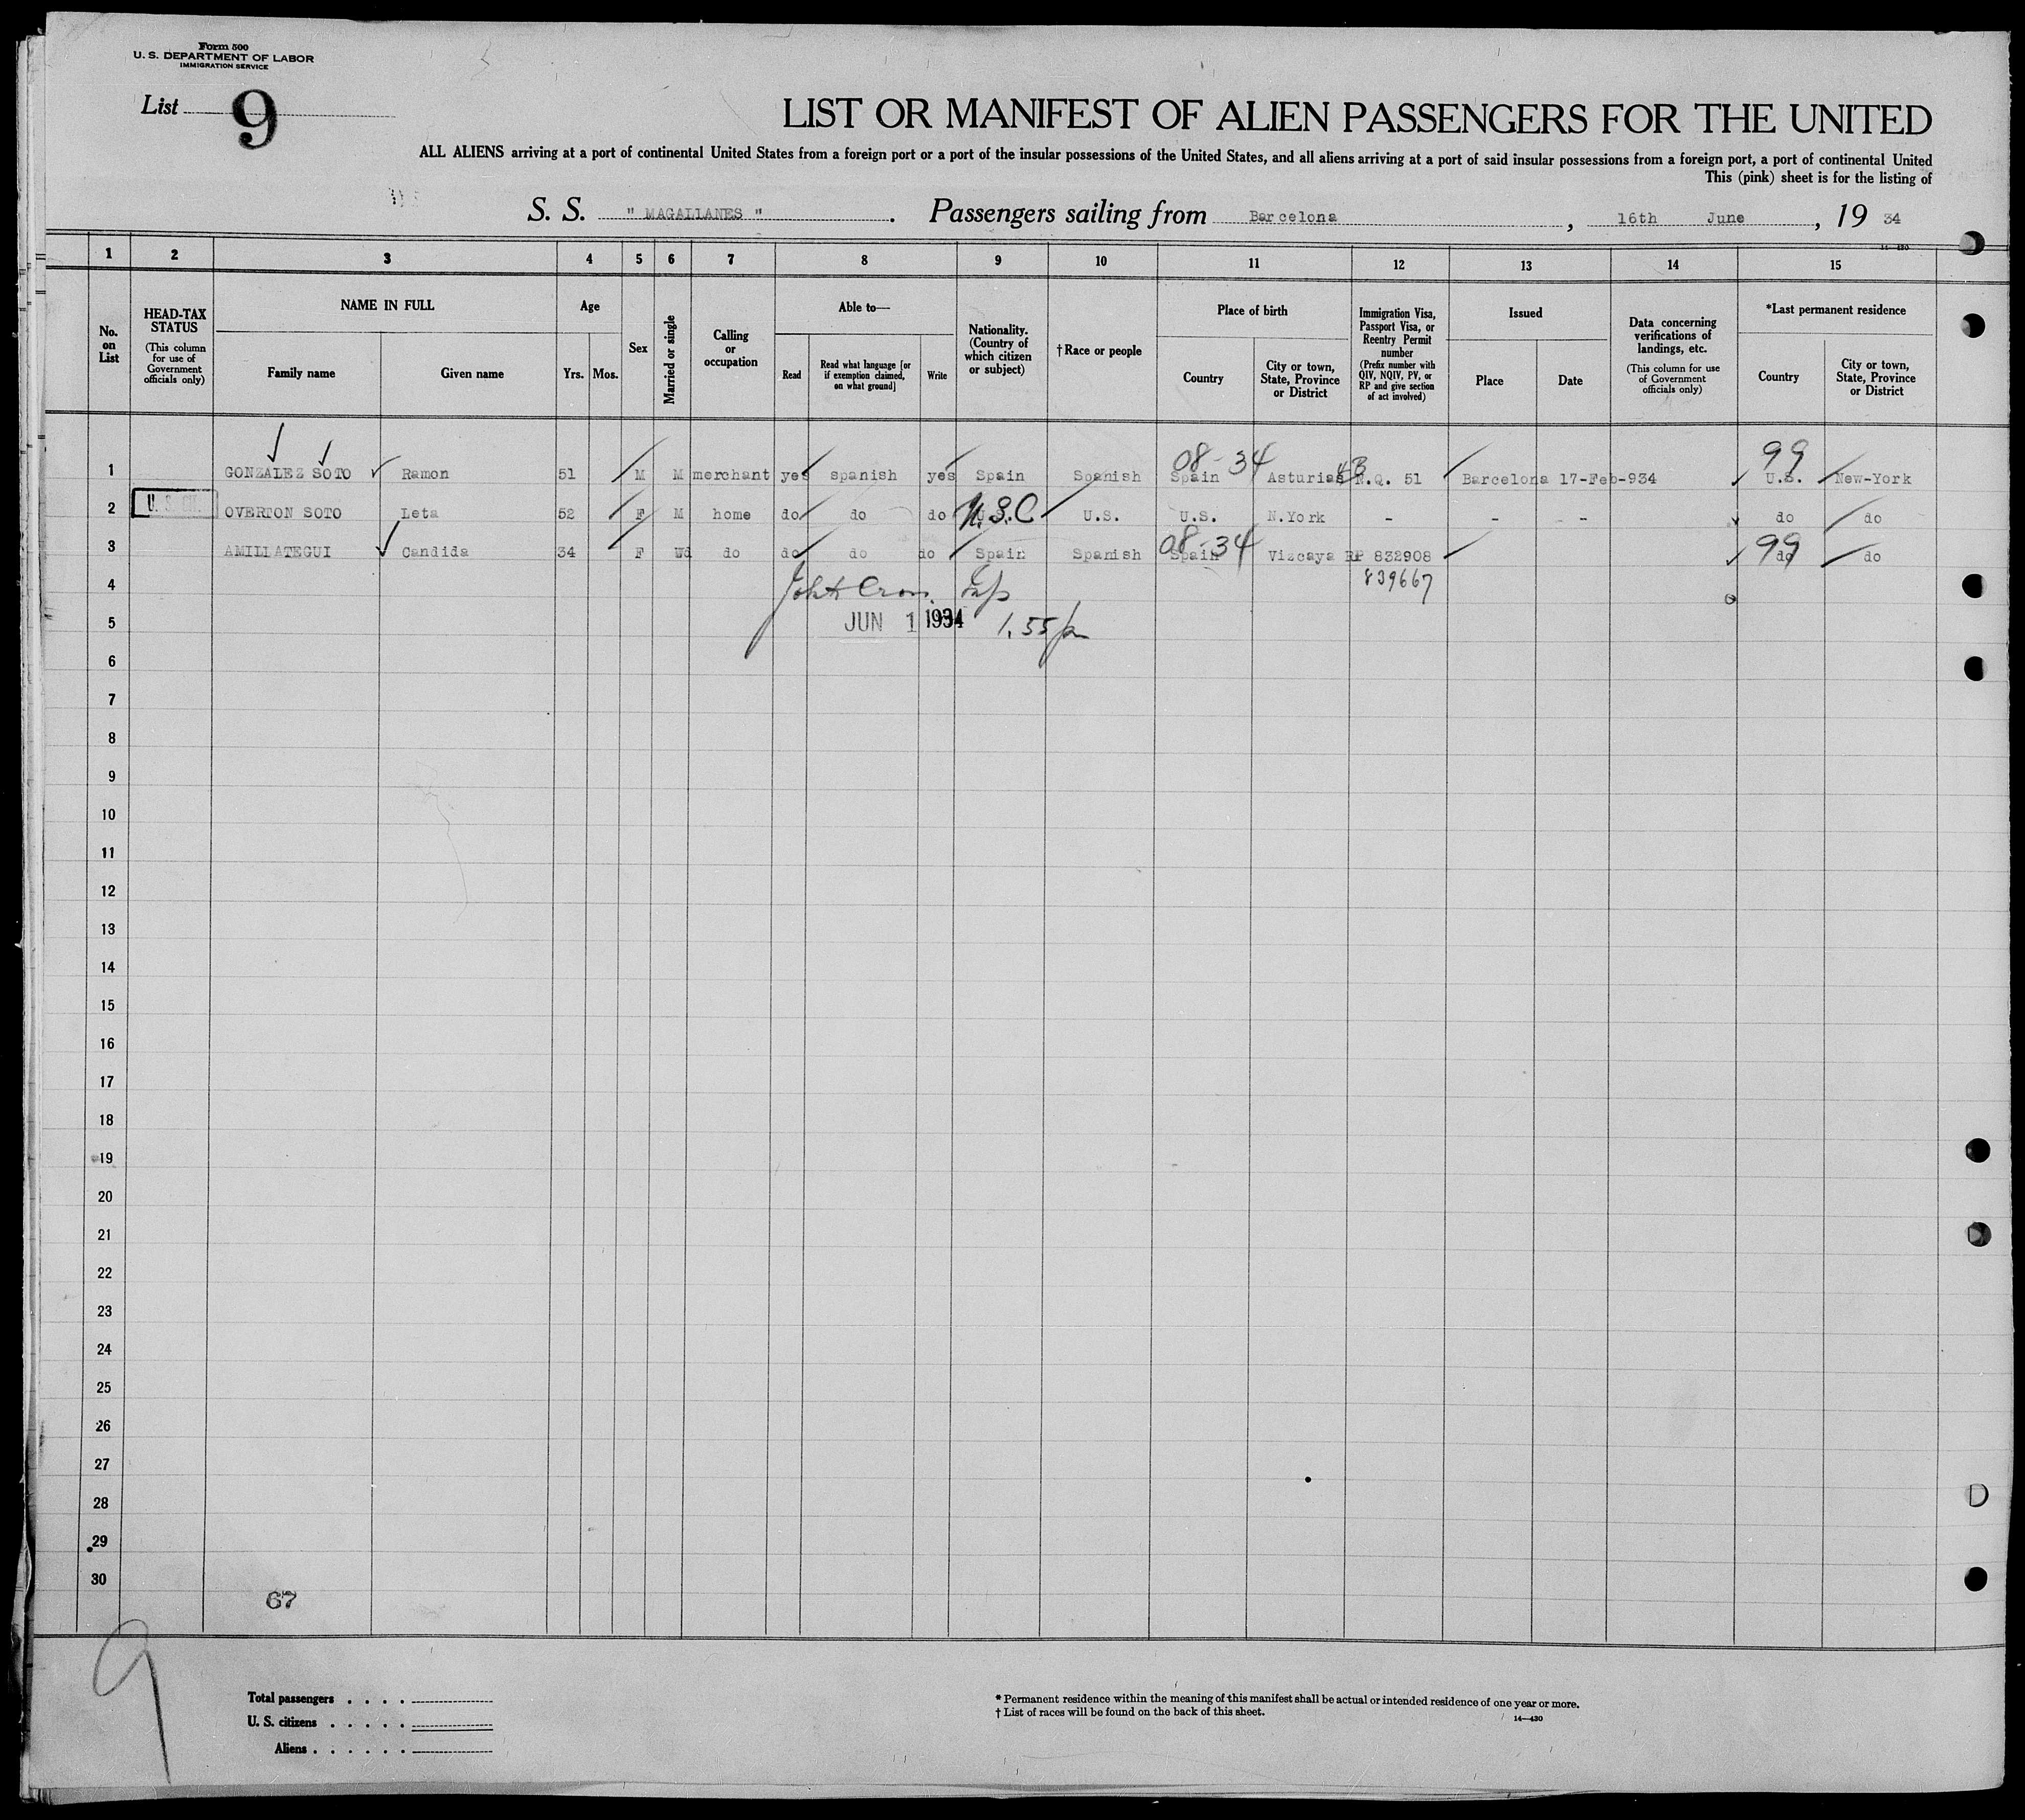 Form 500
U. S. DEPARTMENT OF LABOR
IMMIGRATION SERVICE
List 9
LIST OR MANIFEST OF ALIEN PASSENGERS FOR THE UNITED
ALL ALIENS arriving at a port of continental United States from a foreign port or a port of the insular possessions of the United States, and all aliens arriving at a port of said insular possessions from a foreign port, a port of continental United
This (pink) sheet is for the listing of
S. S. " MAGALLANES " . Passengers sailing from Barcelona , 16th June , 19 34
14—430
1 2 3 4 5 6 7 8 9 10 11 12 13 14 15
No. on List
HEAD-TAX STATUS
(This column for use of Government officials only)
NAME IN FULL
Family name
Given name
Age
Yrs.
Mos.
Sex
Married or single
Calling or occupation
Able to—
Read
Read what language [or if exemption claimed, on what ground]
Write
Nationality. (Country of which citizen or subject)
†Race or people
Place of birth
Country
City or town, State, Province or District
Immigration Visa, Passport Visa, or Reentry Permit number
(Prefix number with QIV, NQIV, PV, or RP and give section of act involved)
Issued
Place
Date
Data concerning verifications of landings, etc.
(This column for use of Government officials only)
*Last permanent residence
Country
City or town, State, Province or District
08-34 4B 99
1 GONZALEZ SOTO Ramon 51 M M merchant yes spanish yes Spain Spanish Spain Asturias N.Q. 51 Barcelona 17-Feb-934 U.S. New-York
2 OVERTON SOTO Leta 52 F M home do do do U.S.C U.S. U.S. N.York - - - do do
08-34 99
3 AMILLATEGUI Candida 34 F Wd do do do do Spain Spanish Spain Vizcaya RP 832908 do do
4 839667
5 JUN 1 1934 1.55 pm
6
7
8
9
10
11
12
13
14
15
16
17
18
19
20
21
22
23
24
25
26
27
28
29
30
67
9
Total passengers . . . .
U. S. citizens . . . . .
Aliens . . . . . .
* Permanent residence within the meaning of this manifest shall be actual or intended residence of one year or more.
† List of races will be found on the back of this sheet.
14—430